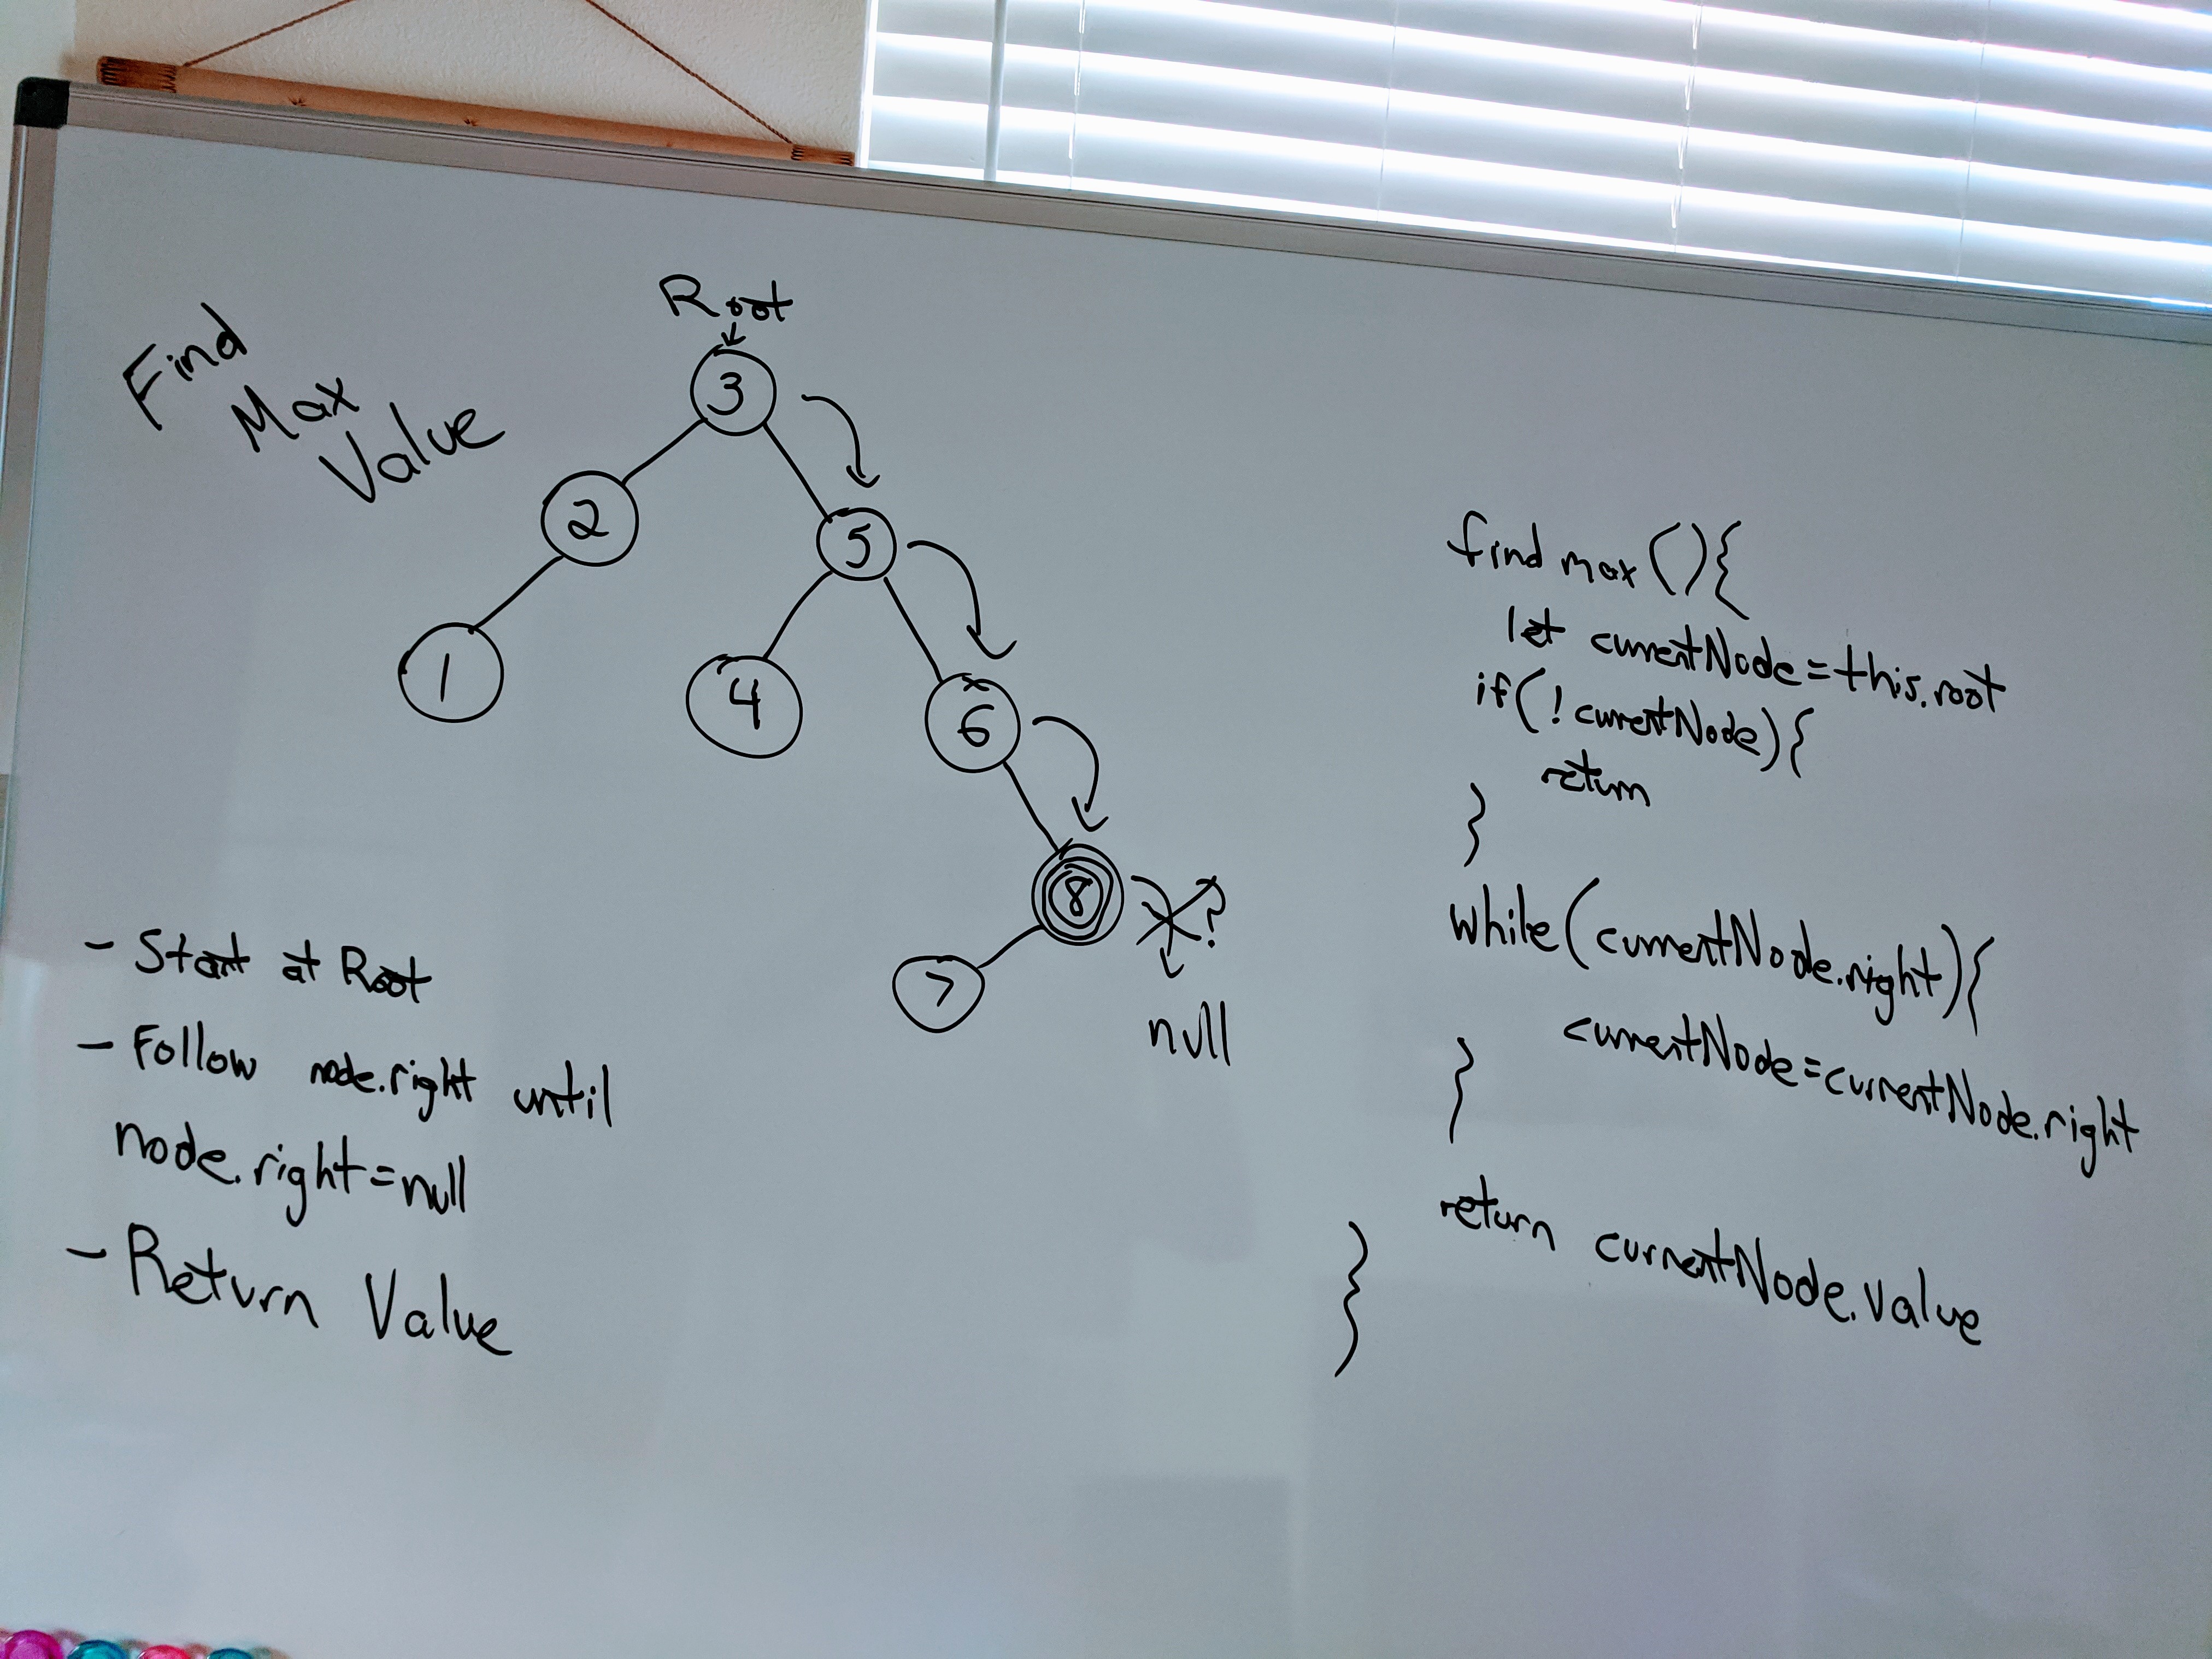 Find
Max
Value
Root
3
2
5
1
4
6
8
?
7
null
- Start at Root
- Follow node.right until
node.right=null
- Return Value
find max(){
let currentNode=this.root
if(!currentNode){
return
}
while(currentNode.right){
currentNode=currentNode.right
}
return currentNode.value
}